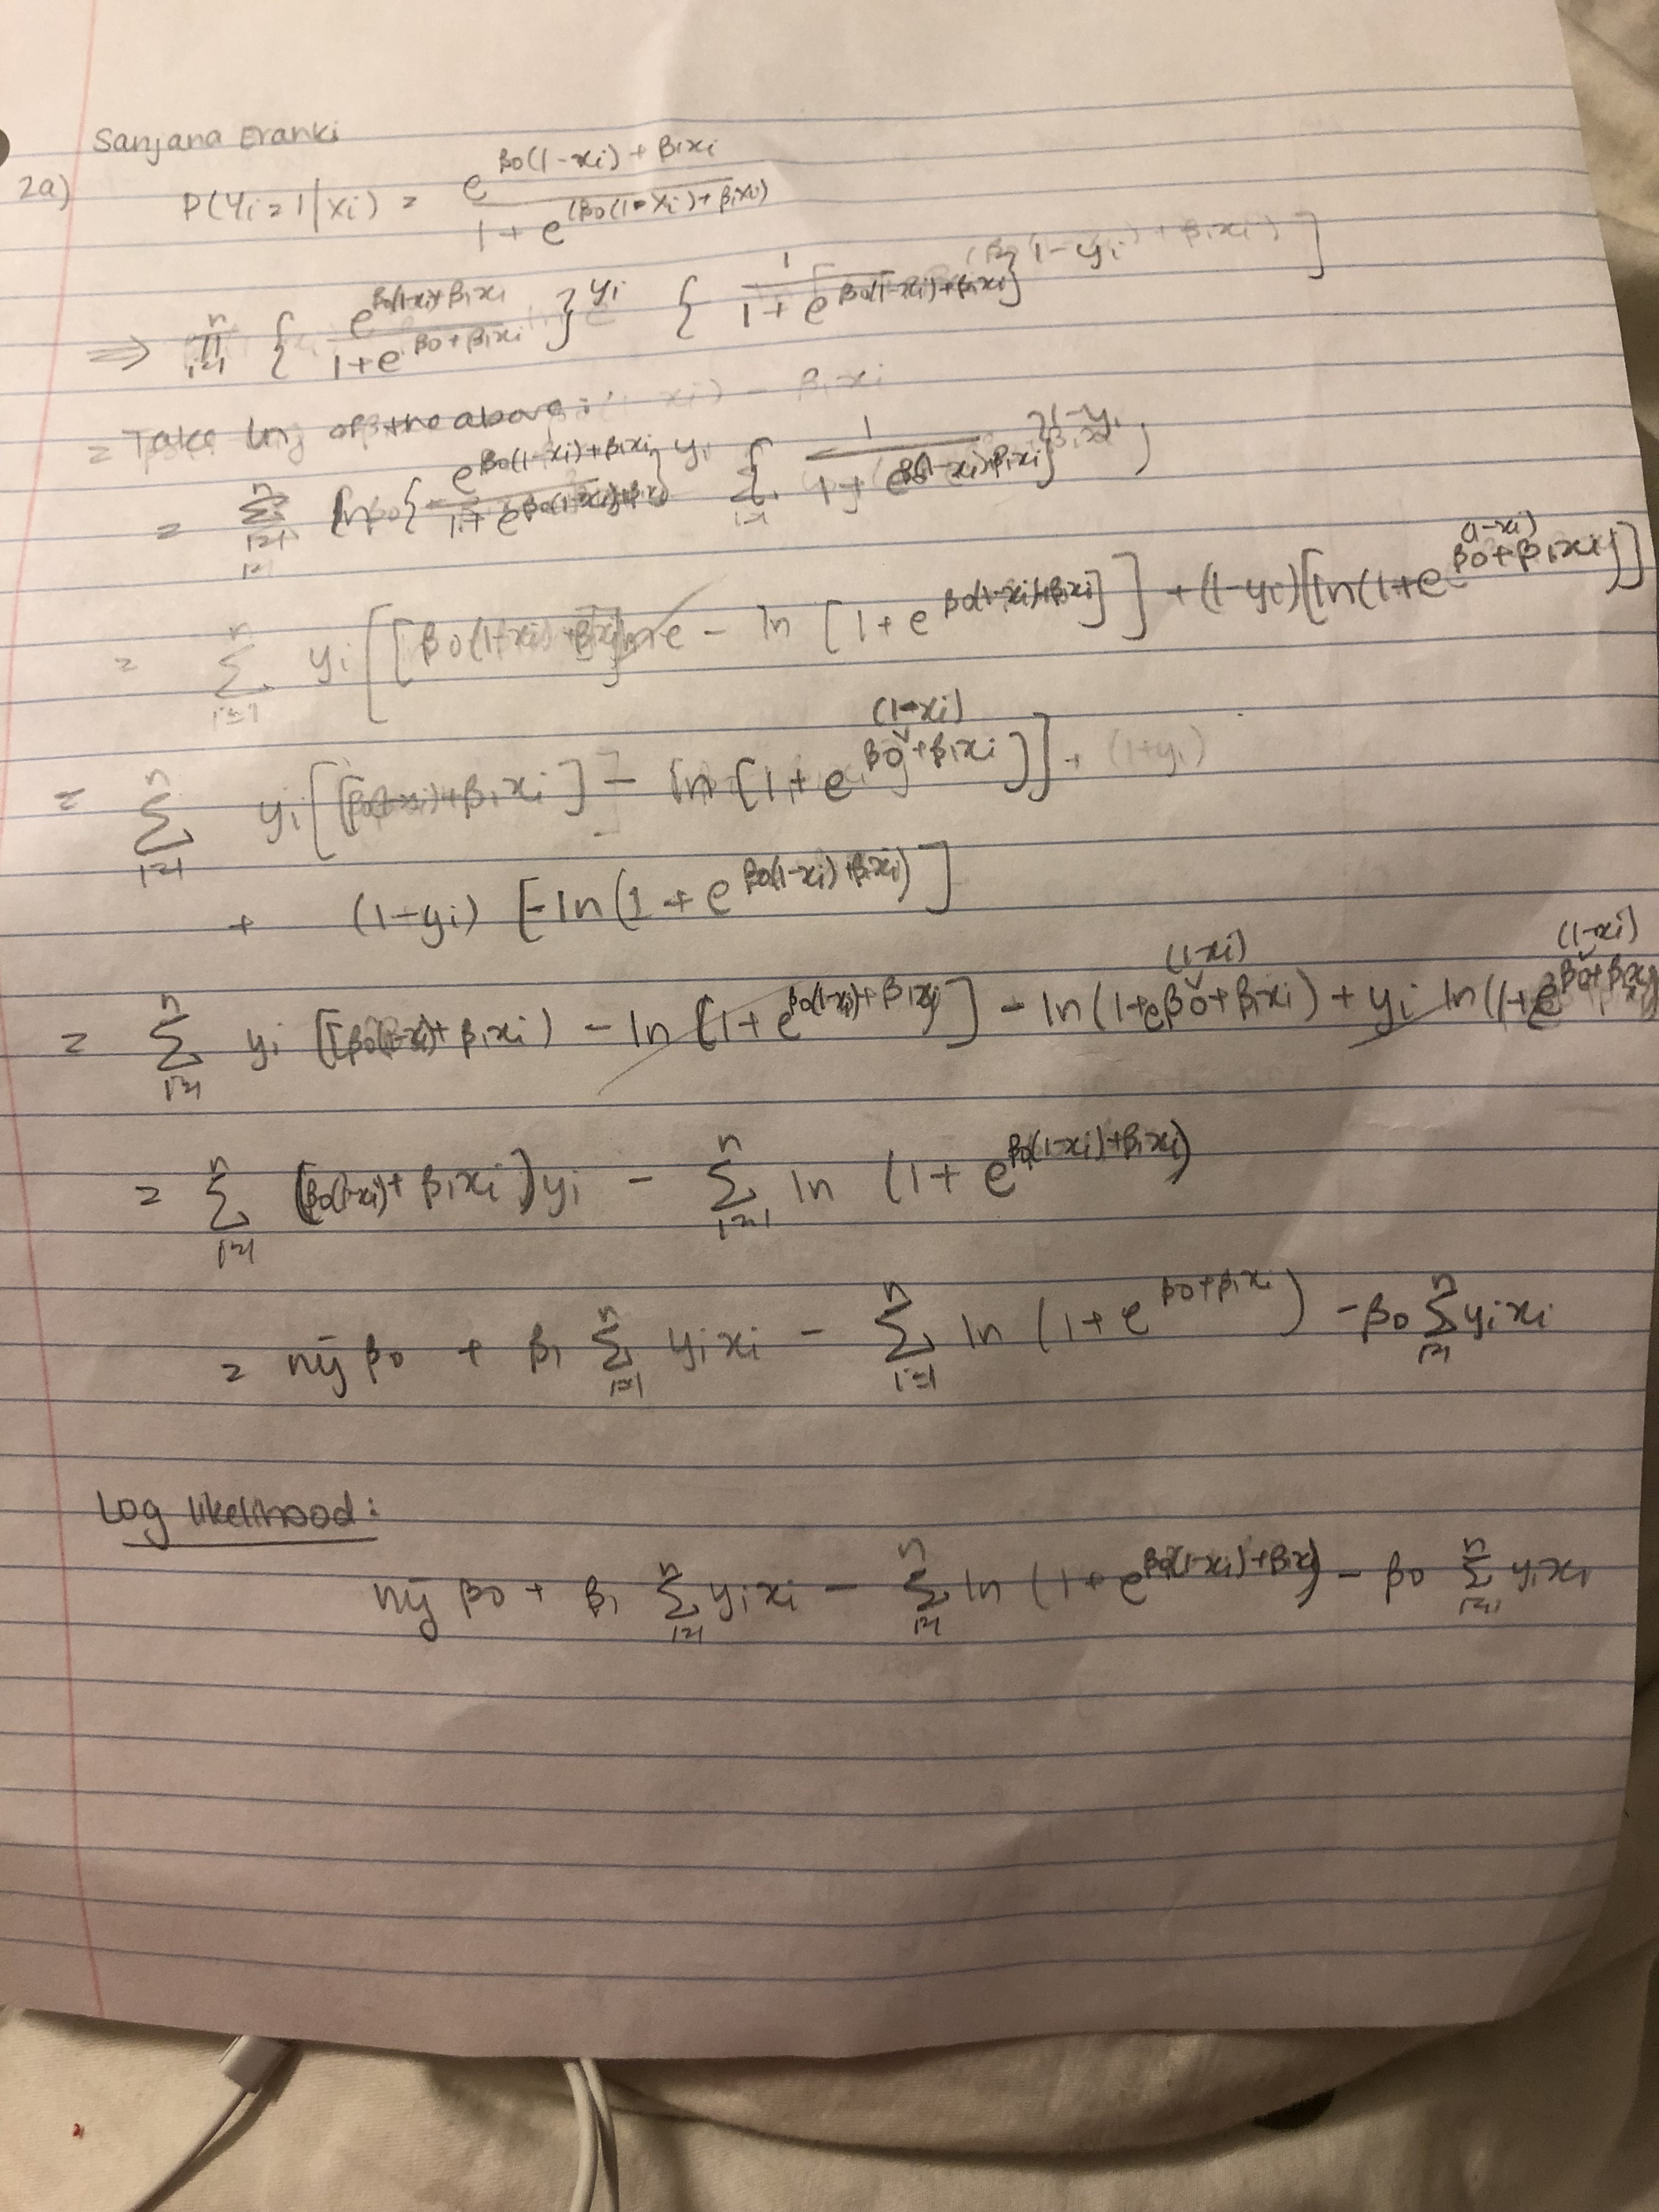 Sanjana Eranki
2a) P(Yi=1|xi) = e^{β0(1-xi)+β1xi} / 1+e^{(β0(1-xi)+β1xi)}
⇒ π_{i=1}^{n} { e^{β0(1-xi)+β1xi} / 1+e^{β0+β1xi} }^{yi} { 1 / 1+e^{β0(1-xi)+β1xi} }^{1-yi}
= Take ln of the above:
= Σ_{i=1}^{n} ln{ e^{β0(1-xi)+β1xi} / 1+e^{β0(1-xi)+β1xi} }^{yi} Σ_{i=1}^{n} { 1 / 1+e^{β0(1-xi)+β1xi} }^{1-yi}
= Σ_{i=1}^{n} yi[[β0(1-xi)+β1xi] ln e - ln [1+e^{β0(1-xi)+β1xi}]] + (1-yi)[ln(1+e^{β0(1-xi)+β1xi})]
= Σ_{i=1}^{n} yi[[β0(1-xi)+β1xi] - ln[1+e^{β0(1-xi)+β1xi}]] + (1+yi)
+ (1-yi) [-ln(1+e^{β0(1-xi)+β1xi})]
= Σ_{i=1}^{n} yi ([β0(1-xi)+β1xi) - ln[1+e^{β0(1-xi)+β1xi}] - ln(1+e^{β0(1-xi)+β1xi}) + yi ln(1+e^{β0(1-xi)+β1xi})
= Σ_{i=1}^{n} (β0(1-xi)+β1xi)yi - Σ_{i=1}^{n} ln (1+e^{β0(1-xi)+β1xi})
= nȳβ0 + β1 Σ_{i=1}^{n} yixi - Σ_{i=1}^{n} ln (1+e^{β0+β1xi}) - β0 Σ_{i=1}^{n} yixi
Log likelihood:
nȳ β0 + β1 Σ_{i=1}^{n} yixi - Σ_{i=1}^{n} ln (1+e^{β0(1-xi)+β1xi}) - β0 Σ_{i=1}^{n} yixi